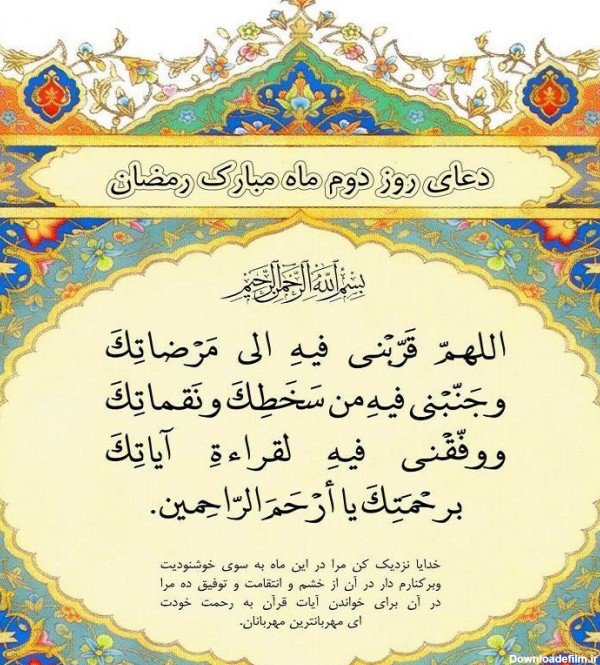 دعای روز دوم ماه مبارک رمضان
بِسْمِ اللَّهِ الرَّحْمَنِ الرَّحِيمِ
اللهمّ قَرّبْنی فیهِ الی مَرْضاتِكَ
وجَنّبْنی فیهِ من سَخَطِكَ ونَقماتِكَ
ووفّقْنی فیهِ لقراءةِ آیاتِكَ
برحْمَتِكَ یا أرْحَمَ الرّاحِمین.
خدایا نزدیک کن مرا در این ماه به سوی خوشنودیت
وبرکنارم دار در آن از خشم و انتقامت و توفیق ده مرا
در آن برای خواندن آیات قرآن به رحمت خودت
ای مهربانترین مهربانان.
Downloadefilm.ir